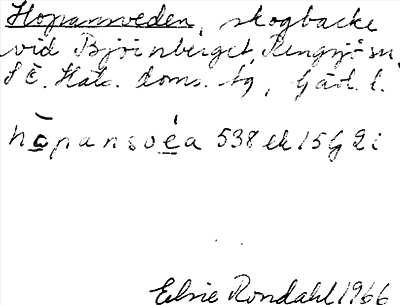 Hopansveden, skogbacke
vid Björnberget, Rengsjö sn,
S Ö. Häls. doms. tg, Gävl. l.
hɔ̀pansvéa 538 ek 15G 2i
Elsie Rondahl 1966